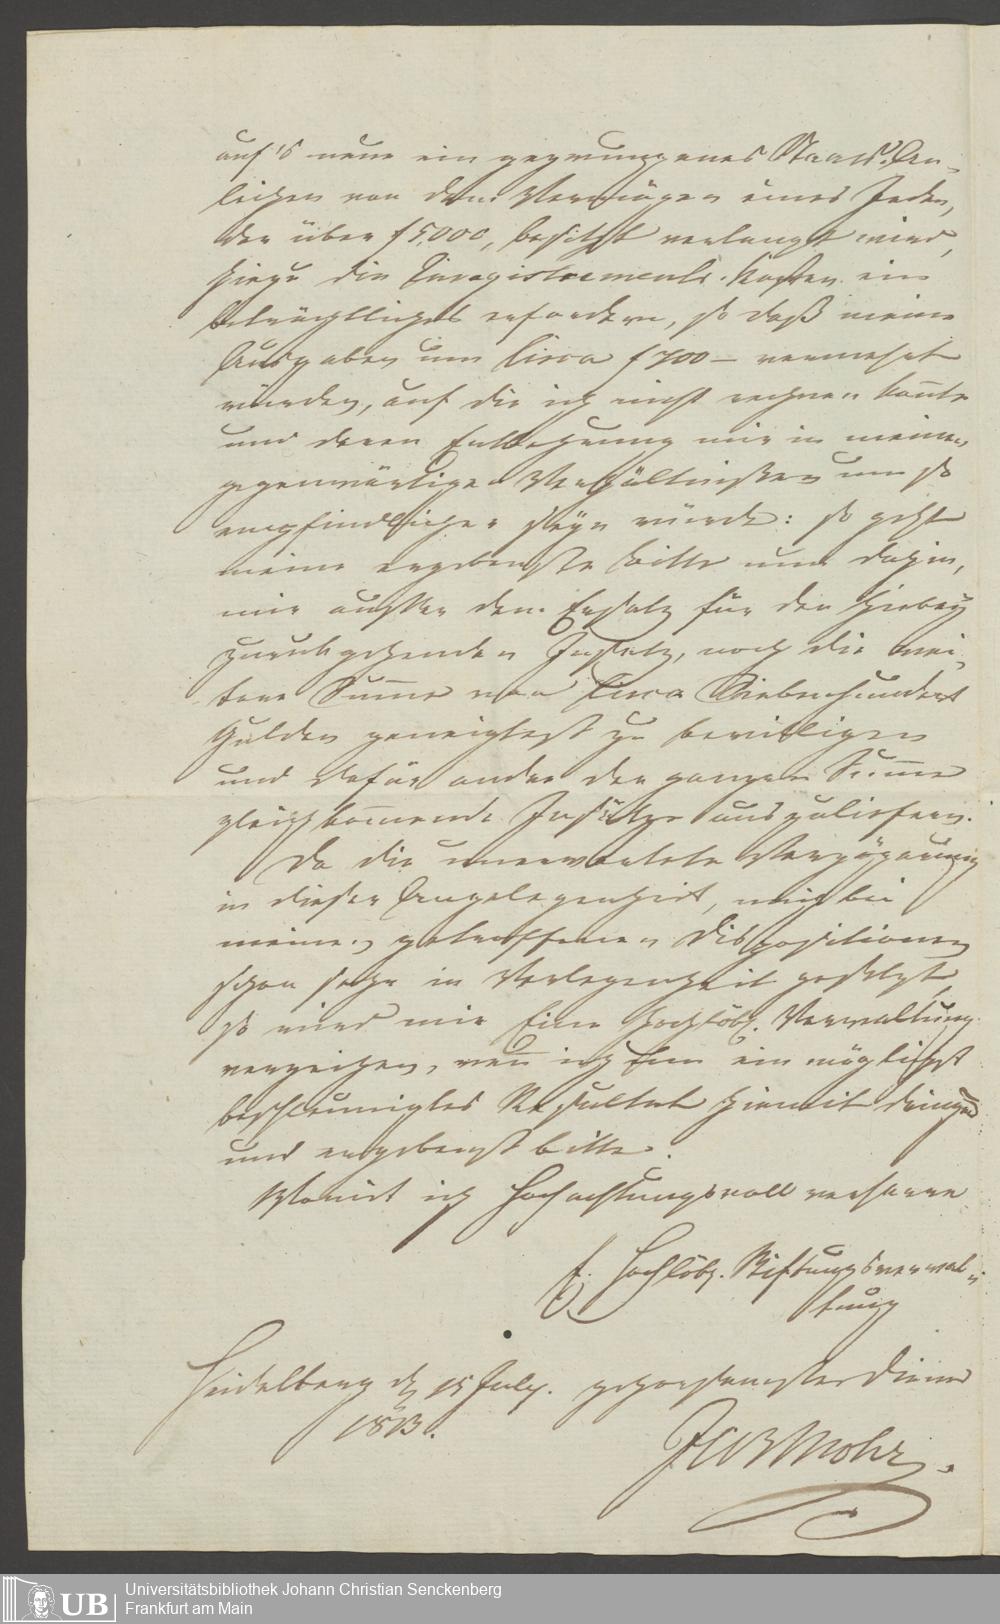 auf's neue ein gezwunggenes Staats-An-
leihen von dem Vermögen eines Jeden,
der über f 5000, besitzt verlangt wird,
hiezu die Enregistrements-Kosten ein
beträchtliches erfordern, so daß meine
Ausgaben um Circa f 700 – vermehrt
würden, auf die ich nicht rechnen konte
und deren Entbehrung mir in meinen
gegenwärtigen Verhältnißen um so
empfindlicher seyn würde: so geht
meine ergebenste Bitte nun dahin,
mir ausser dem Ersatz für den hiebey
zurückgehenden Insatz, noch die wei-
tere Sume von Circa Siebenhundert
Gulden geneigtest zu bewilligen
und dafür andre der ganzen Sume
gleichkomende Insätze auszuliefern.
Da die unerwartete Verzögerung
in dieser Angelegenheit, mich bei
meinen getroffenen Dispositionen
schon sehr in Verlegenheit gesetzt,
so wird mir Eine Hochlöbl. Verwaltung
verzeihen, wen ich um ein möglichst
beschleunigtes Resultat hiemit dringend
und ergebenst bitte.
Womit ich Hochachtungsvoll verharre
E. Hochlöbl. Stiftungsverwal-
tung
Heidelberg d 15 July. gehorsamster Diener
1813.
JCBMohr.
UB Universitätsbibliothek Johann Christian Senckenberg
Frankfurt am Main